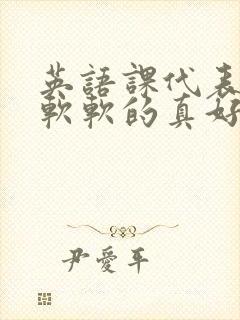 英語課代表
軟軟的真好
尹愛平